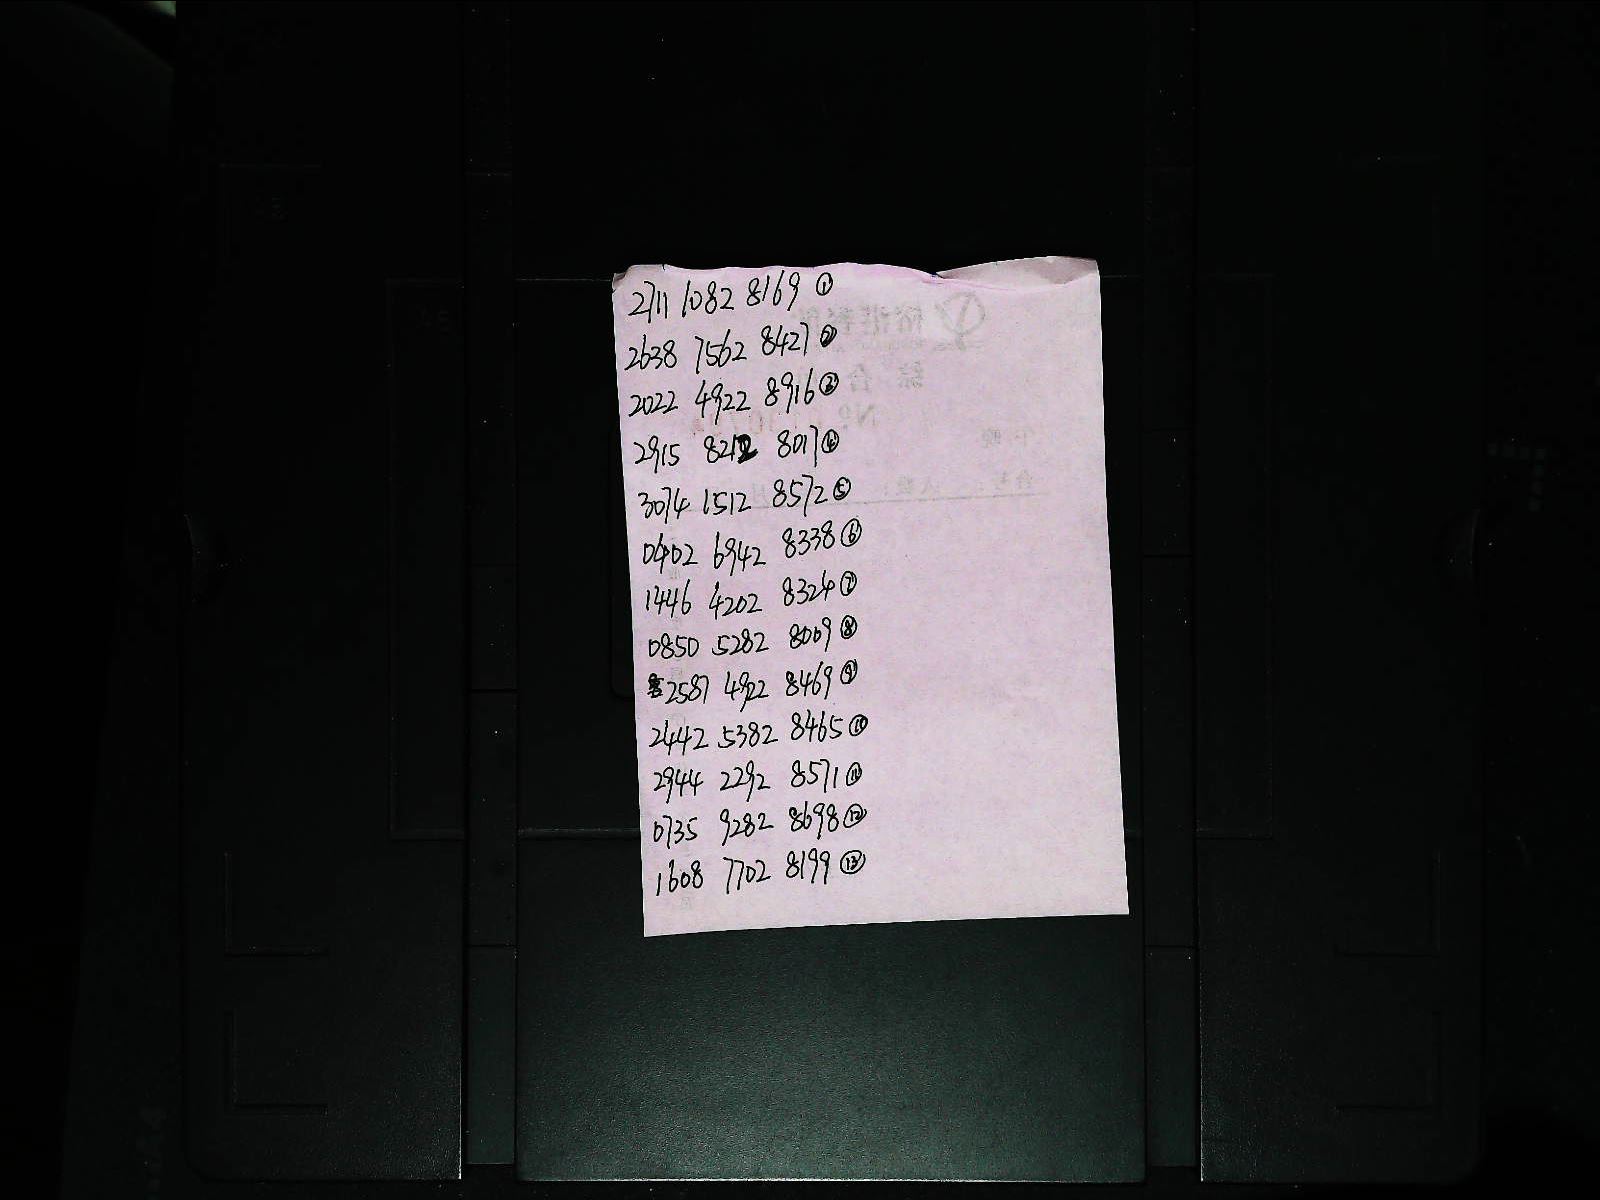 2711 1082 8169 ①
2638 7562 8427 ②
2022 4922 8916 ③
2915 8212 8017 ④
3074 1512 8572 ⑤
0402 6942 8338 ⑥
1446 4202 8324 ⑦
0850 5282 8009 ⑧
2587 4922 8469 ⑨
2442 5382 8465 ⑩
2944 2292 8571 ⑪
0735 9282 8698 ⑫
1608 7702 8199 ⑬